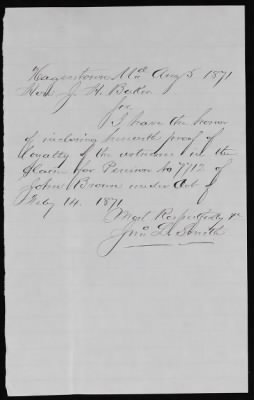 Hagerstown Md. Aug 5 1871
Hon J. H. Baker
Sir
I have the honor
of inclosing herewith proof of
loyalty of the witnesses in the
Claim for Pension No 7712 of
John Brown under Act of
Feby 14. 1871
Most Respectfully &c
Jno D. Smith